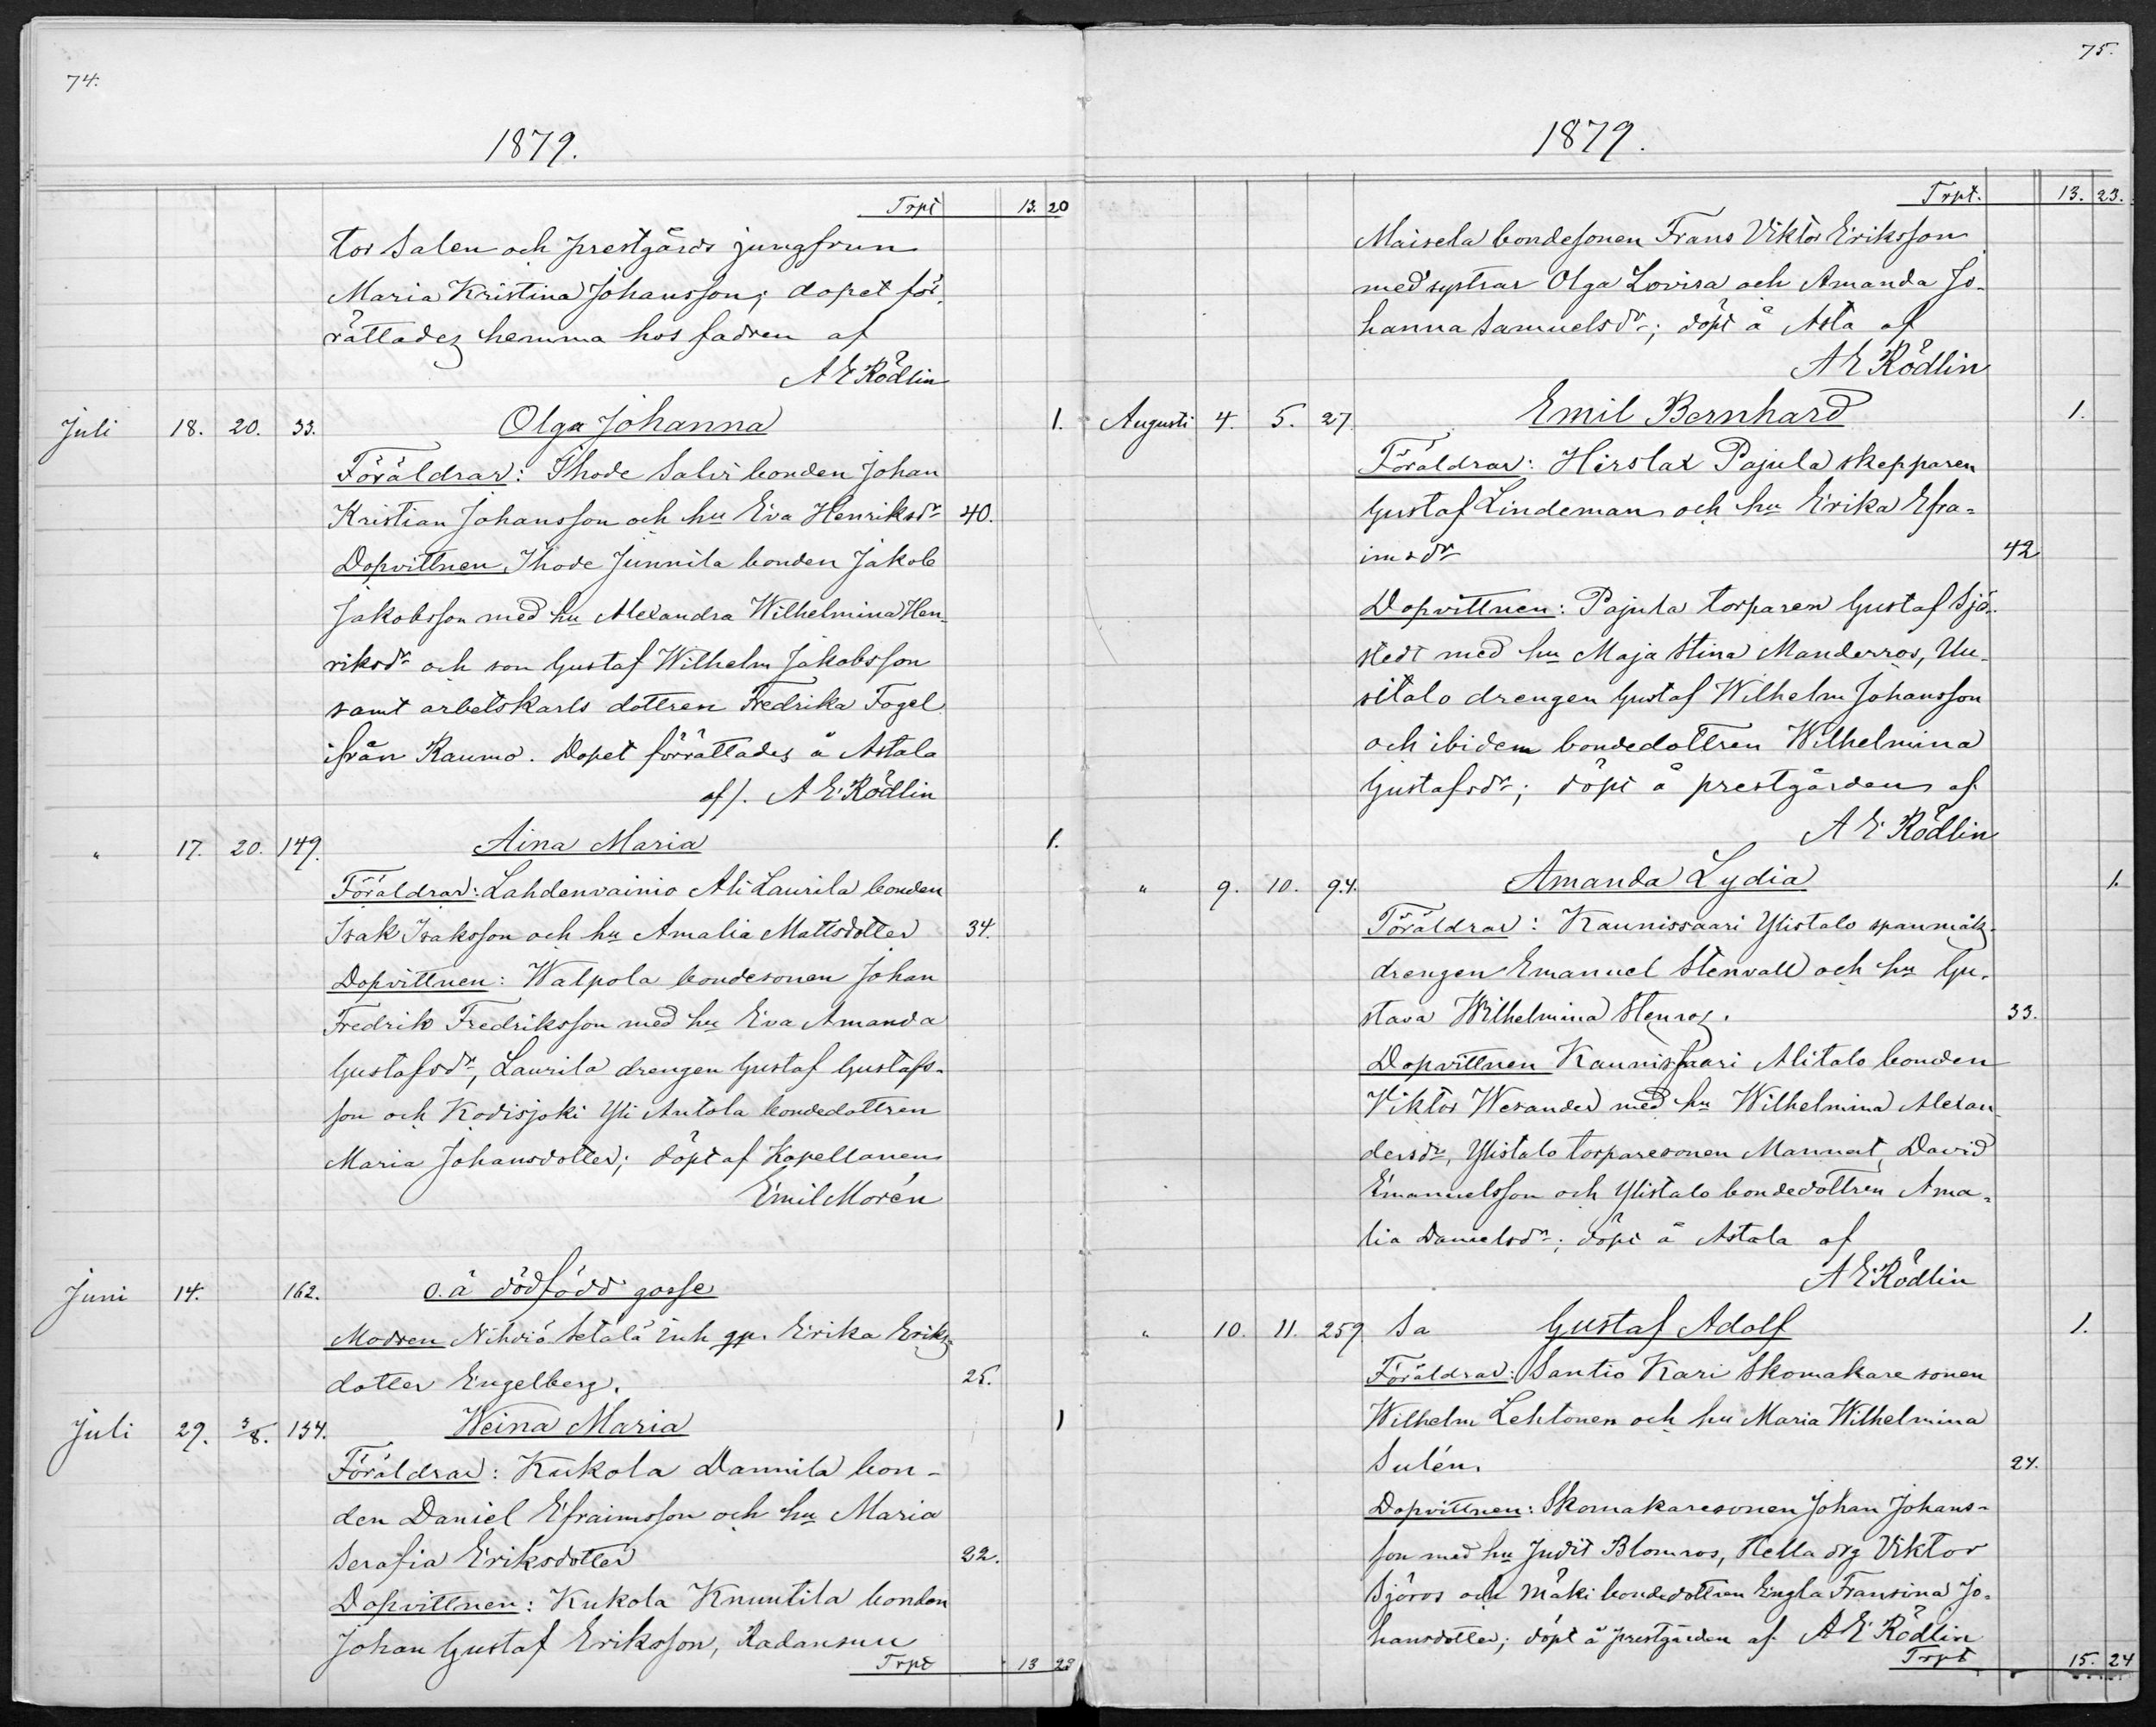 74.
1879.
Trpt 13. 20
tor Salen och prestgårds jungfrun
Maria Kristina Johansson; dopet för-
rättades hemma hos fadren af
A E Rödlin
Juli 18. 20. 33. Olga Johanna 1.
Föräldrar: Ihode Salvi bonden Johan
Kristian Johansson och hu Eva Henriksdr 40.
Dopvittnen, Ihode Junnila bonden Jakob
Jakobsson med hu Alexandra Wilhelmina Hen-
riksdr och son Gustaf Wilhelm Jakobsson
samt arbetskarls dottren Fredrika Fogel
ifrån Raumo. Dopet förrättades å Astala
af A E Rödlin
" 17. 20. 149. Aina Maria 1.
Föräldrar: Lahdenvainio Ali Laurila bonden
Isak Isaksson och hu Amalia Mattsdotter 34.
Dopvittnen: Walpola bondesonen Johan
Fredrik Fredriksson med hu Eva Amanda
Gustafsdr, Laurila drengen Gustaf Gustafs-
son och Kodisjoki Yli Antola bondedottren
Maria Johansdotter; döpt af Kapellanen
Emil Morén
Juni 14. 162. o.ä dödfödd gosse
Modren Nihviä Setälä inh Erika Eriks-
dotter Engelberg. 25.
Juli 29. 3/8. 154. Weina Maria 1
Föräldrar: Kukola Dannila bon-
den Daniel Efraimsson och hu Maria
Serafia Eriksdotter 22.
Dopvittnen: Kukola Knuutila bonden
Johan Gustaf Eriksson, Radansuu
Trpt 13 23
75.
1879.
Trpt. 13. 23.
Maisela bondesonen Frans Viktor Eriksson
med systrar Olga Lovisa och Amanda Jo-
hanna Samuelsdr; döpt å Asta af
A E Rödlin
Augusti 4. 5. 27 Emil Bernhard 1.
Föräldrar: Hirslax Pajula skepparen
Gustaf Lindeman och hu Erika Efra-
imsdr 42
Dopvittnen: Pajula torparen Gustaf Sjö-
stedt med hu Maja Stina Manderros, Uu-
sitalo drengen Gustaf Wilhelm Johansson
och ibidem bondedottren Wilhelmina
Gustafsdr; döpt å prestgården af
A E Rödlin
" 9. 10. 94. Amanda Lydia 1.
Föräldrar: Kaunissaari Ylistalo spanmåls-
drengen Emanuel Stenvall och hu Gu-
stava Wilhelmina Stenros. 33.
Dopvittnen Kaunissaari Alitalo bonden
Viktor Wexander med hu Wilhelmina Alexan-
dersdr, Ylistalo torparesonen Mannat, David
Emanuelsson och Ylistalo bondedottren Ama-
lia Danielsdr; döpt å Astala af
A E Rödlin
" 10. 11. 259 Sa Gustaf Adolf 1.
Föräldrar: Santio Kari Skomakare sonen
Wilhelm Lehtonen och hu Maria Wilhelmina
Sulén. 24.
Dopvittnen: Skomakaresonen Johan Johans-
son med hu Judit Blomros, Hella drg Viktor
Sjöros och Mäki bondedottren Engla Fransina Jo-
hansdotter; döpt å prestgården af A E Rödlin
Trpt 15. 24